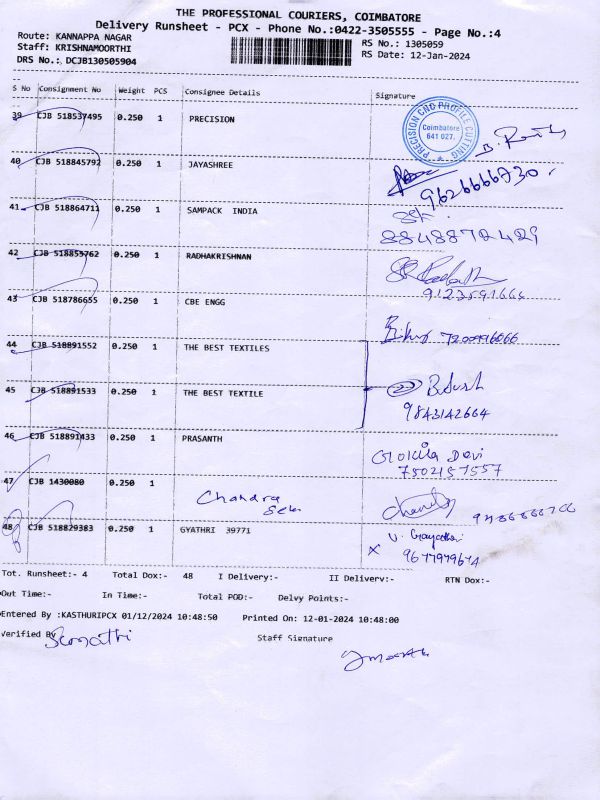 THE PROFESSIONAL COURIERS, COIMBATORE
Delivery Runsheet - PCX - Phone No.:0422-3505555 - Page No.:4
Route: KANNAPPA NAGAR
RS No.: 1305059
Staff: KRISHNAMOORTHI
RS Date: 12-Jan-2024
DRS No.: DCJB130505904
S No Consignment No Weight PCS Consignee Details Signature
39 CJB 518537495 0.250 1 PRECISION
PRECISION CNC PROFILE CUTTING Coimbatore 641 027.
40 CJB 518845792 0.250 1 JAYASHREE
9626666730
41 CJB 518864711 0.250 1 SAMPACK INDIA
8848872429
42 CJB 518855762 0.250 1 RADHAKRISHNAN
43 CJB 518786655 0.250 1 CBE ENGG
44 CJB 518891552 0.250 1 THE BEST TEXTILES
45 CJB 518891533 0.250 1 THE BEST TEXTILE
9843142664
46 CJB 518891433 0.250 1 PRASANTH
Gokila Devi
7502157557
47 CJB 1430080 0.250 1
Chandra
48 CJB 518829383 0.250 1 GYATHRI 39771
V. Gayathri
9677979674
Tot. Runsheet:- 4 Total Dox:- 48 I Delivery:- II Delivery:- RTN Dox:-
Out Time:- In Time:- Total POD:- Delvy Points:-
Entered By :KASTHURIPCX 01/12/2024 10:48:50 Printed On: 12-01-2024 10:48:00
Verified By
Staff Signature